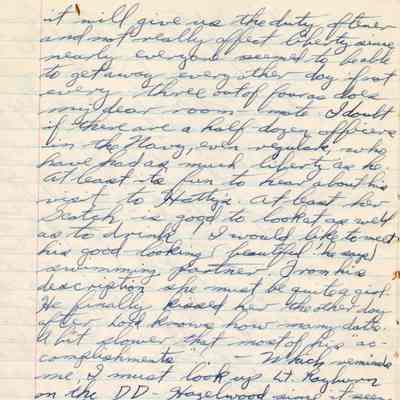 it will give us the duty oftener
and not really affect liberty since
nearly everyone seemed to be able
to get away every other day if not
every three out of four as does
my dear room-mate. I doubt
if there are a half dozen officers
in the Navy, even regulars, who
have had as much liberty as he
At least its fun to hear about his
visit to Hatty's. At least her
Scotch is good to look at as well
as to drink. I would like to meet
his good looking (beautiful he says)
swimming partner. From his
description she must be quite a girl.
He finally kissed her the other day
after God knows how many dates.
A bit slower that most of his "ac-
complishments" - Which reminds
me, I must look up Lt. Rayburn
on the DD- Hazelwood since it seem